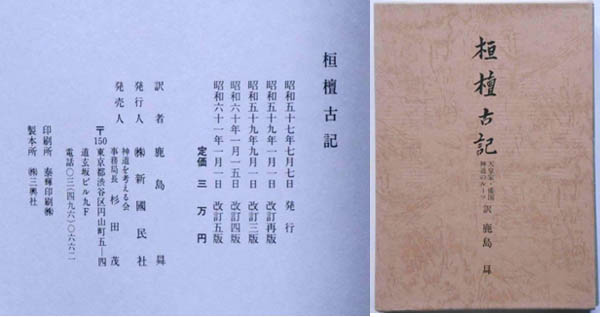 桓檀古記
昭和五十七年七月七日 発行
昭和五十九年一月一日 改訂再版
昭和五十九年九月一日 改訂三版
昭和六十年一月一五日 改訂四版
昭和六十一年一月一日 改訂五版
定価 三万円
訳者 鹿島曻
発行人 ㈱新國民社
神道を考える会
発売人 事務局長 杉田茂
〒150 東京都渋谷区円山町五―四
道玄坂ビル九F
電話〇三(四九六)〇六六二
印刷所 泰輝印刷㈱
製本所 ㈱三興社
桓檀古記
神道のルーツ
訳 鹿島曻